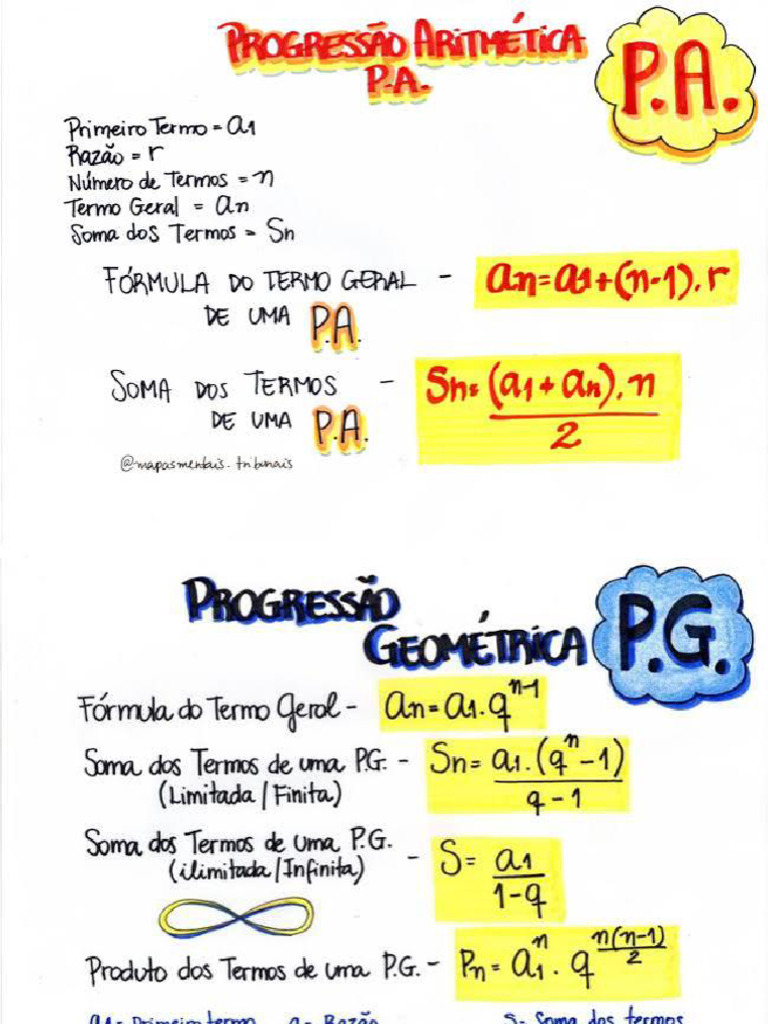 PROGRESSÃO ARITMÉTICA
P.A.
P.A.
Primeiro Termo = a1
Razão = r
Número de Termos = n
Termo Geral = an
Soma dos Termos = Sn
FÓRMULA DO TERMO GERAL - an=a1+(n-1).r
DE UMA P.A.
SOMA DOS TERMOS - Sn=(a1+an).n
DE UMA P.A. 2
@mapasmentais.tribunais
PROGRESSÃO
GEOMÉTRICA
P.G.
Fórmula do Termo Geral - an=a1.q^n-1
Soma dos Termos de uma P.G. - Sn=a1.(q^n-1)
(Limitada/Finita) q-1
Soma dos Termos de uma P.G.
(ilimitada/Infinita) - S= a1
1-q
Produto dos Termos de uma P.G. - Pn= a1^n . q^n(n-1)/2
a1= Primeiro termo q= Razão S= Soma dos termos